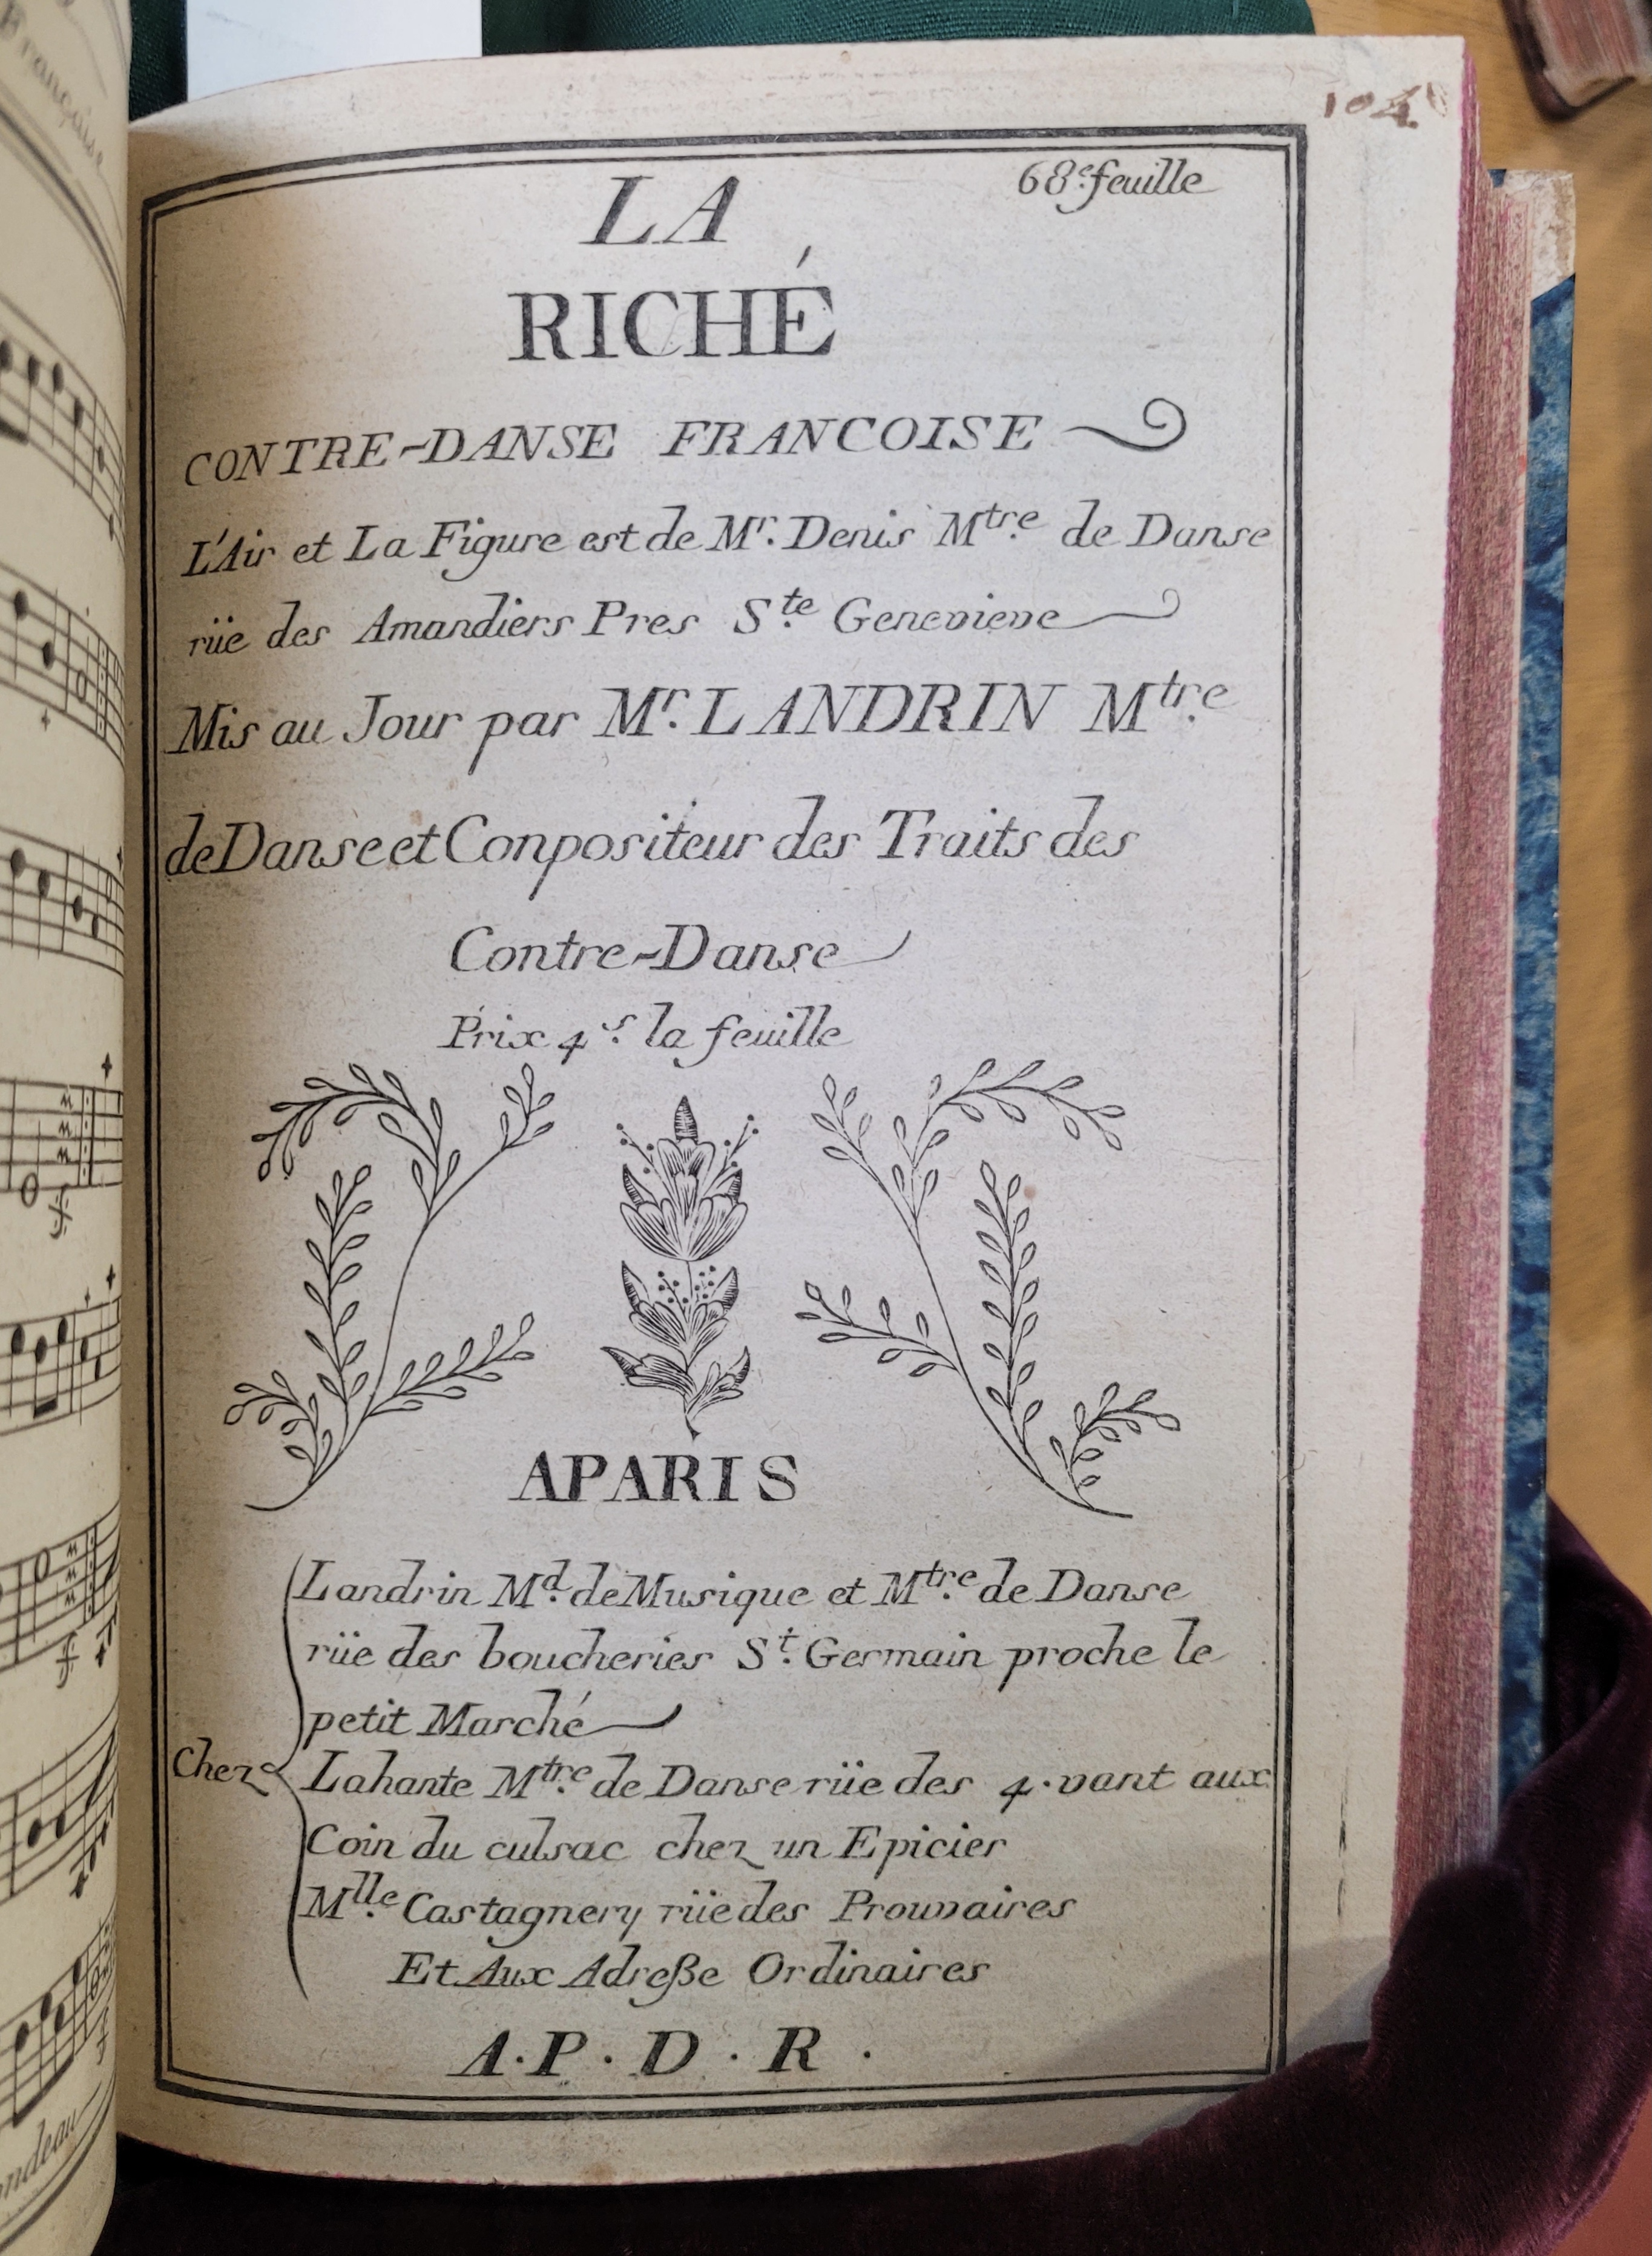 104
68.e feuille
LA
RICHÉ
CONTRE-DANSE FRANCOISE
L'Air et La Figure est de Mr. Denis Mtre. de Danse
rüe des Amandiers Pres Ste. Genevieve
Mis au Jour par Mr. LANDRIN Mtre.
de Danse et Conpositeur des Traits des
Contre-Danse
Prix 4.s la feuille
APARIS
Chez
Landrin Md. de Musique et Mtre. de Danse
rüe des boucheries St. Germain proche le
petit Marché
Lahante Mtre. de Danse rüe des 4. vant aux
Coin du culsac chez un Epicier
Mlle. Castagnery rüe des Prouvaires
Et Aux Adreße Ordinaires
A. P. D. R.